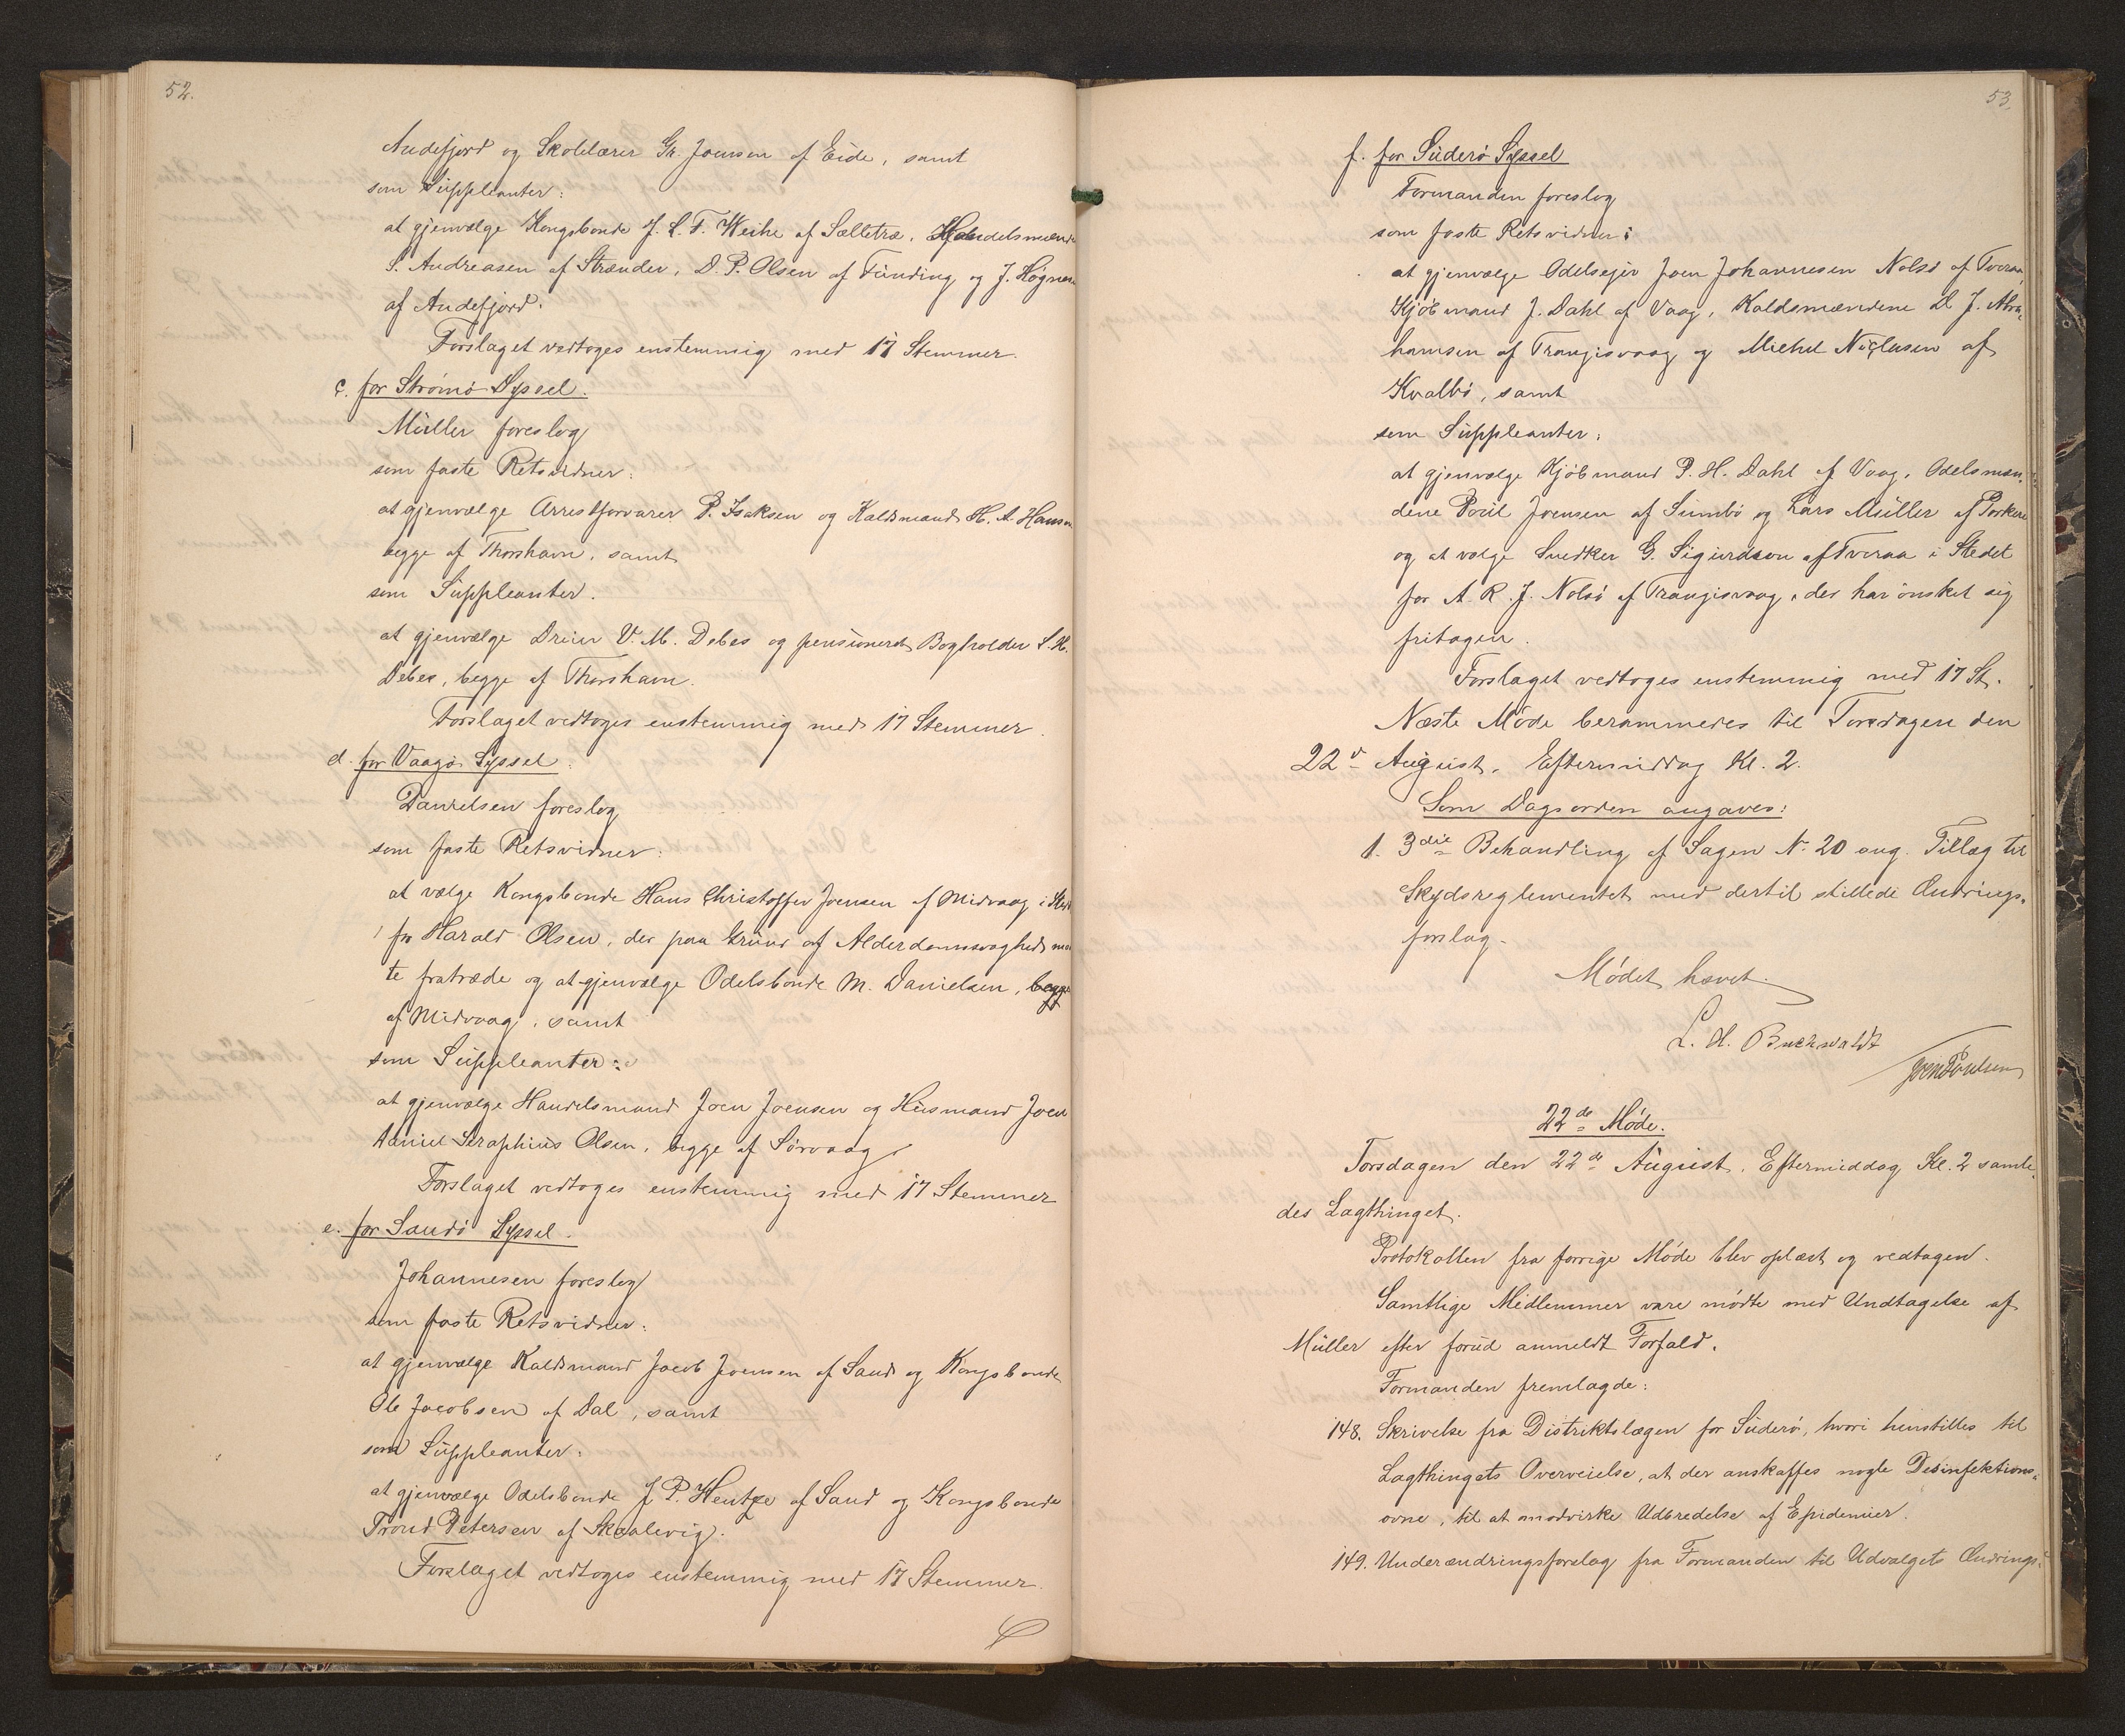 52.
Andefjord og Skolelærer Gr. Joensen af Eide, samt
som Suppleanter:
at gjenvælge Kongsbonde J. S. F. Weihe af Sælletræ, Handelsmænd
S. Andreasen af Strænder, D. P. Olsen af Funding og J. Høgnesen
af Andefjord.
Forslaget vedtoges enstemmig med 17 Stemmer.
c. for Strømø Syssel.
Müller foreslog
som faste Retsvidner:
at gjenvælge Arrestforvarer P. Isaksen og Kaldsmand H. A. Hansen
begge af Thorshavn, samt
som Suppleanter.
at gjenvælge Dreier V. M. Debes og pensioneret Bogholder S. H.
Debes, begge af Thorshavn.
Forslaget vedtoges enstemmig med 17 Stemmer.
d. for Vaagø Syssel.
Danielsen foreslog
som faste Retsvidner:
at vælge Kongsbonde Hans Christoffer Joensen af Midvaag i Stedet
for Harald Olsen, der paa Grund af Alderdomssvaghed maa
te fratræde og at gjenvælge Odelsbonde M. Danielsen, begge
af Midvaag, samt
som Suppleanter:
at gjenvælge Handelsmand Joen Joensen og Husmand Joen
Daniel Seraphius Olsen, begge af Sørvaag.
Forslaget vedtoges enstemmig med 17 Stemmer
e. for Sandø Syssel.
Johannesen foreslog
som faste Retsvidner:
at gjenvælge Kaldsmand Jacob Joensen af Sand og Kongsbonde
Ole Jacobsen af Dal, samt
som Suppleanter:
at gjenvælge Odelsbonde J. P. Hentze af Sand og Kongsbonde
Trond Petersen af Skaalevig.
Forslaget vedtoges enstemmig med 17 Stemmer.
53.
f. for Suderø Syssel
Formanden foreslog
som faste Retsvidner:
at gjenvælge Odelsejer Joen Johannesen Nolsø af Tveraa,
Kjøbmand J. Dahl af Vaag, Kaldsmændene D. J. Abra-
hamsen af Trangisvaag og Michel Niclasen af
Kvalbø, samt
som Suppleanter:
at gjenvælge Kjøbmand P. H. Dahl af Vaag, Odelsmæn-
dene Poul Joensen af Sumbø og Lars Müller af Porkere
og at vælge Snedker G. Sigurdson af Tveraa i Stedet
for A. R. J. Nolsø af Trangisvaag, der har ønsket sig
fritagen.
Forslaget vedtoges enstemmig med 17 St.
Næste Møde berammedes til Torsdagen den
22d August, Eftermiddag Kl. 2.
Som Dagsorden angaves:
1. 3die Behandling af Sagen N. 20 ang. Tillæg til
Skydsreglementet med dertil stillede Ændrings-
forslag.
Mødet hævet.
L. H. Buchwaldt
Joen Poulsen
22de Møde.
Torsdagen den 22de August, Eftermiddag Kl. 2 samle-
des Lagthinget.
Protokollen fra forrige Møde blev oplæst og vedtagen.
Samtlige Medlemmer vare mødte med Undtagelse af
Müller efter forud anmeldt Forfald.
Formanden fremlagde:
148. Skrivelse fra Distriktslægen for Suderø, hvori henstilles til
Lagthingets Overveielse, at der anskaffes nogle Desinfektions-
ovne, til at modvirke Udbredelse af Epidemier.
149. Underændringsforslag fra Formanden til Udvalgets Ændrings-